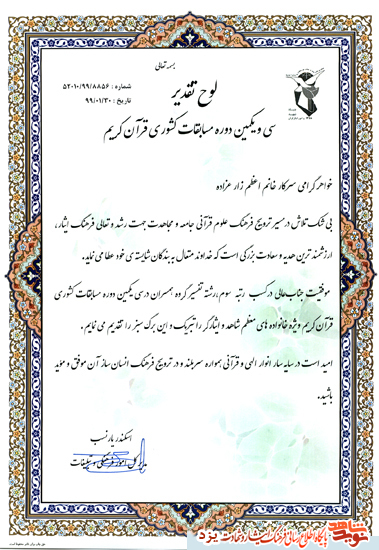 بسمه تعالی
شماره : ۵۲۰۱۰/۹۹/۸۸۵۶
تاریخ : ۹۹/۰۱/۳۰
لوح تقدیر
سی و یکمین دوره مسابقات کشوری قرآن کریم
خواهر گرامی سرکار خانم اعظم زارعزاده
بی شک تلاش در مسیر ترویج فرهنگ علوم قرآنی جامعه و مجاهدت جهت رشد و تعالی فرهنگ ایثار،
ارزشمندترین هدیه و سعادت بزرگی است که خداوند متعال به بندگان شایسته ی خود عطا می نماید.
موفقیت جنابعالی در کسب رتبه سوم رشته تفسیر گروه همسران در سی یکمین دوره مسابقات کشوری
قرآن کریم ویژه خانواده های معظم شاهد و ایثارگر را تبریک و این برگ سبز را تقدیم می نمایم.
امید است در سایه سار انوار الهی و قرآنی همواره سربلند و در ترویج فرهنگ انسان ساز آن موفق و مؤید
باشید.
اسکندر یارنسب
مدیر کل امور فرهنگی و تبلیغات
نوید شاهد
پایگاه اطلاع رسانی فرهنگ ایثار و شهادت یزد